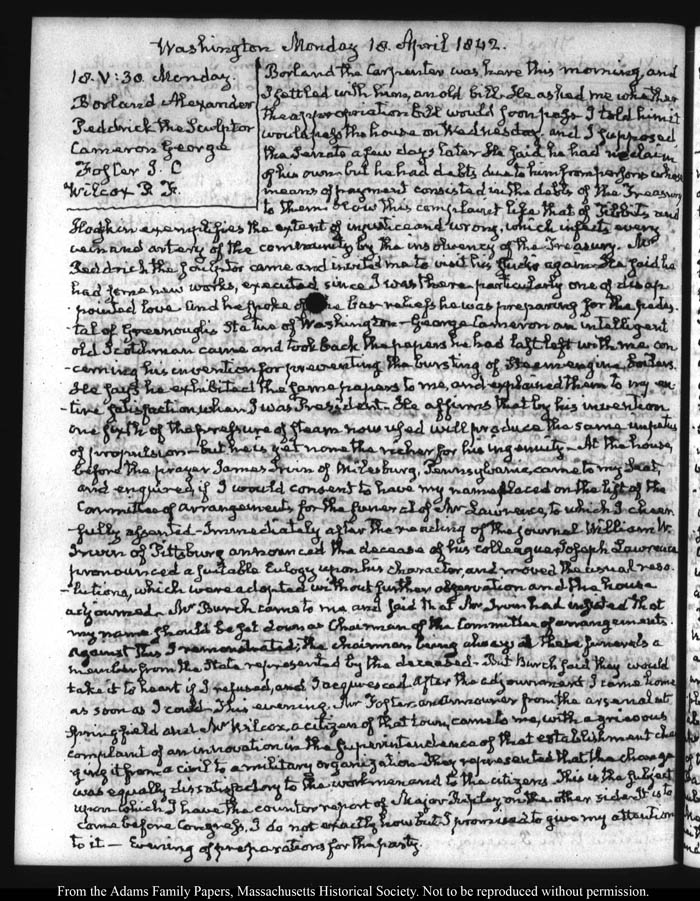 Washington Monday 18. April 1842.
18. V:30. Monday.
Borland Alexander
Peddrick the Sculptor
Cameron George
Foster J. C
Wilcox P. F.
Borland the Carpenter was here this morning, and
I settled with him, an old bill. He asked me whether
the appropriation bill would soon pass. I told him it
would pass the house on Wednesday, and I supposed
the Senate a few days later. He said he had no claim
of his own but he had debts due to him from persons whose
means of payment consisted in the debts of the Treasury
to them. Now this complaint like that of Tibbits and
Hodgkin exemplifies the extent of injustice and wrong, which infects every
vein and artery of the community by the insolvency of the Treasury. Mr
Peddrick the Sculptor came and invited me to visit his again. He said he
had some new works, executed since I was there particularly one of disap
pointed love and he spoke of bas reliefs he was preparing for the pedes
tal of Greenough's Statue of Washington. George Cameron an intelligent
old Scotchman came and took back the papers he had last left with me con
-cerning his invention for preventing the bursting of Steam engine boilers.
He says he exhibited the same papers to me, and explained them to my en
-tire satisfaction when I was President. He affirms that by his invention
one sixth of the pressure of steam now used will produce the same impetus
of propulsion—but he is yet none the richer for his ingenuity. At the house,
before the prayer James Irvin of Milesburg, Pennsylvania, came to my Seat
and enquired if I would consent to have my name placed on the list of the
Committee of arrangements for the funeral of Mr Lawrence, to which I cheer
-fully assented. Immediately after the reading of the journal William W.
Irwin of Pittsburg announced the decease of his colleague, Joseph Lawrence
pronounced a suitable Eulogy upon his character, and moved the usual reso
-lutions, which were adopted without further observation and the house
adjourned. Mr Burch came to me and said that Mr Irwin had that
my name should be set down as Chairman of the Committee of arrangements.
Against this I remonstrated; the chairman being always at these funerals a
member from the State represented by the deceased. But Burch said they would
take it to heart if I refused, and I acquiesced. After the adjournment I came home
as soon as I could. This evening. Mr Foster, an armourer from the arsenal at
Springfield and Mr Wilcox, a citizen of that town, came to me, with a grievous
complaint of an innovation in the Superintendence of that establishment chan
ging it from a civil to a military organization. They represented that the change
was equally dissatisfactory to the workmen and to the citizens. This is the subject
upon which I have the counter report of Major Ripley, on the other side. It is to
come before Congress, I do not exactly know but I promised to give my attention
to it— Evening of preparations for the party.
From the Adams Family Papers, Massachusetts Historical Society. Not to be reproduced without permission.